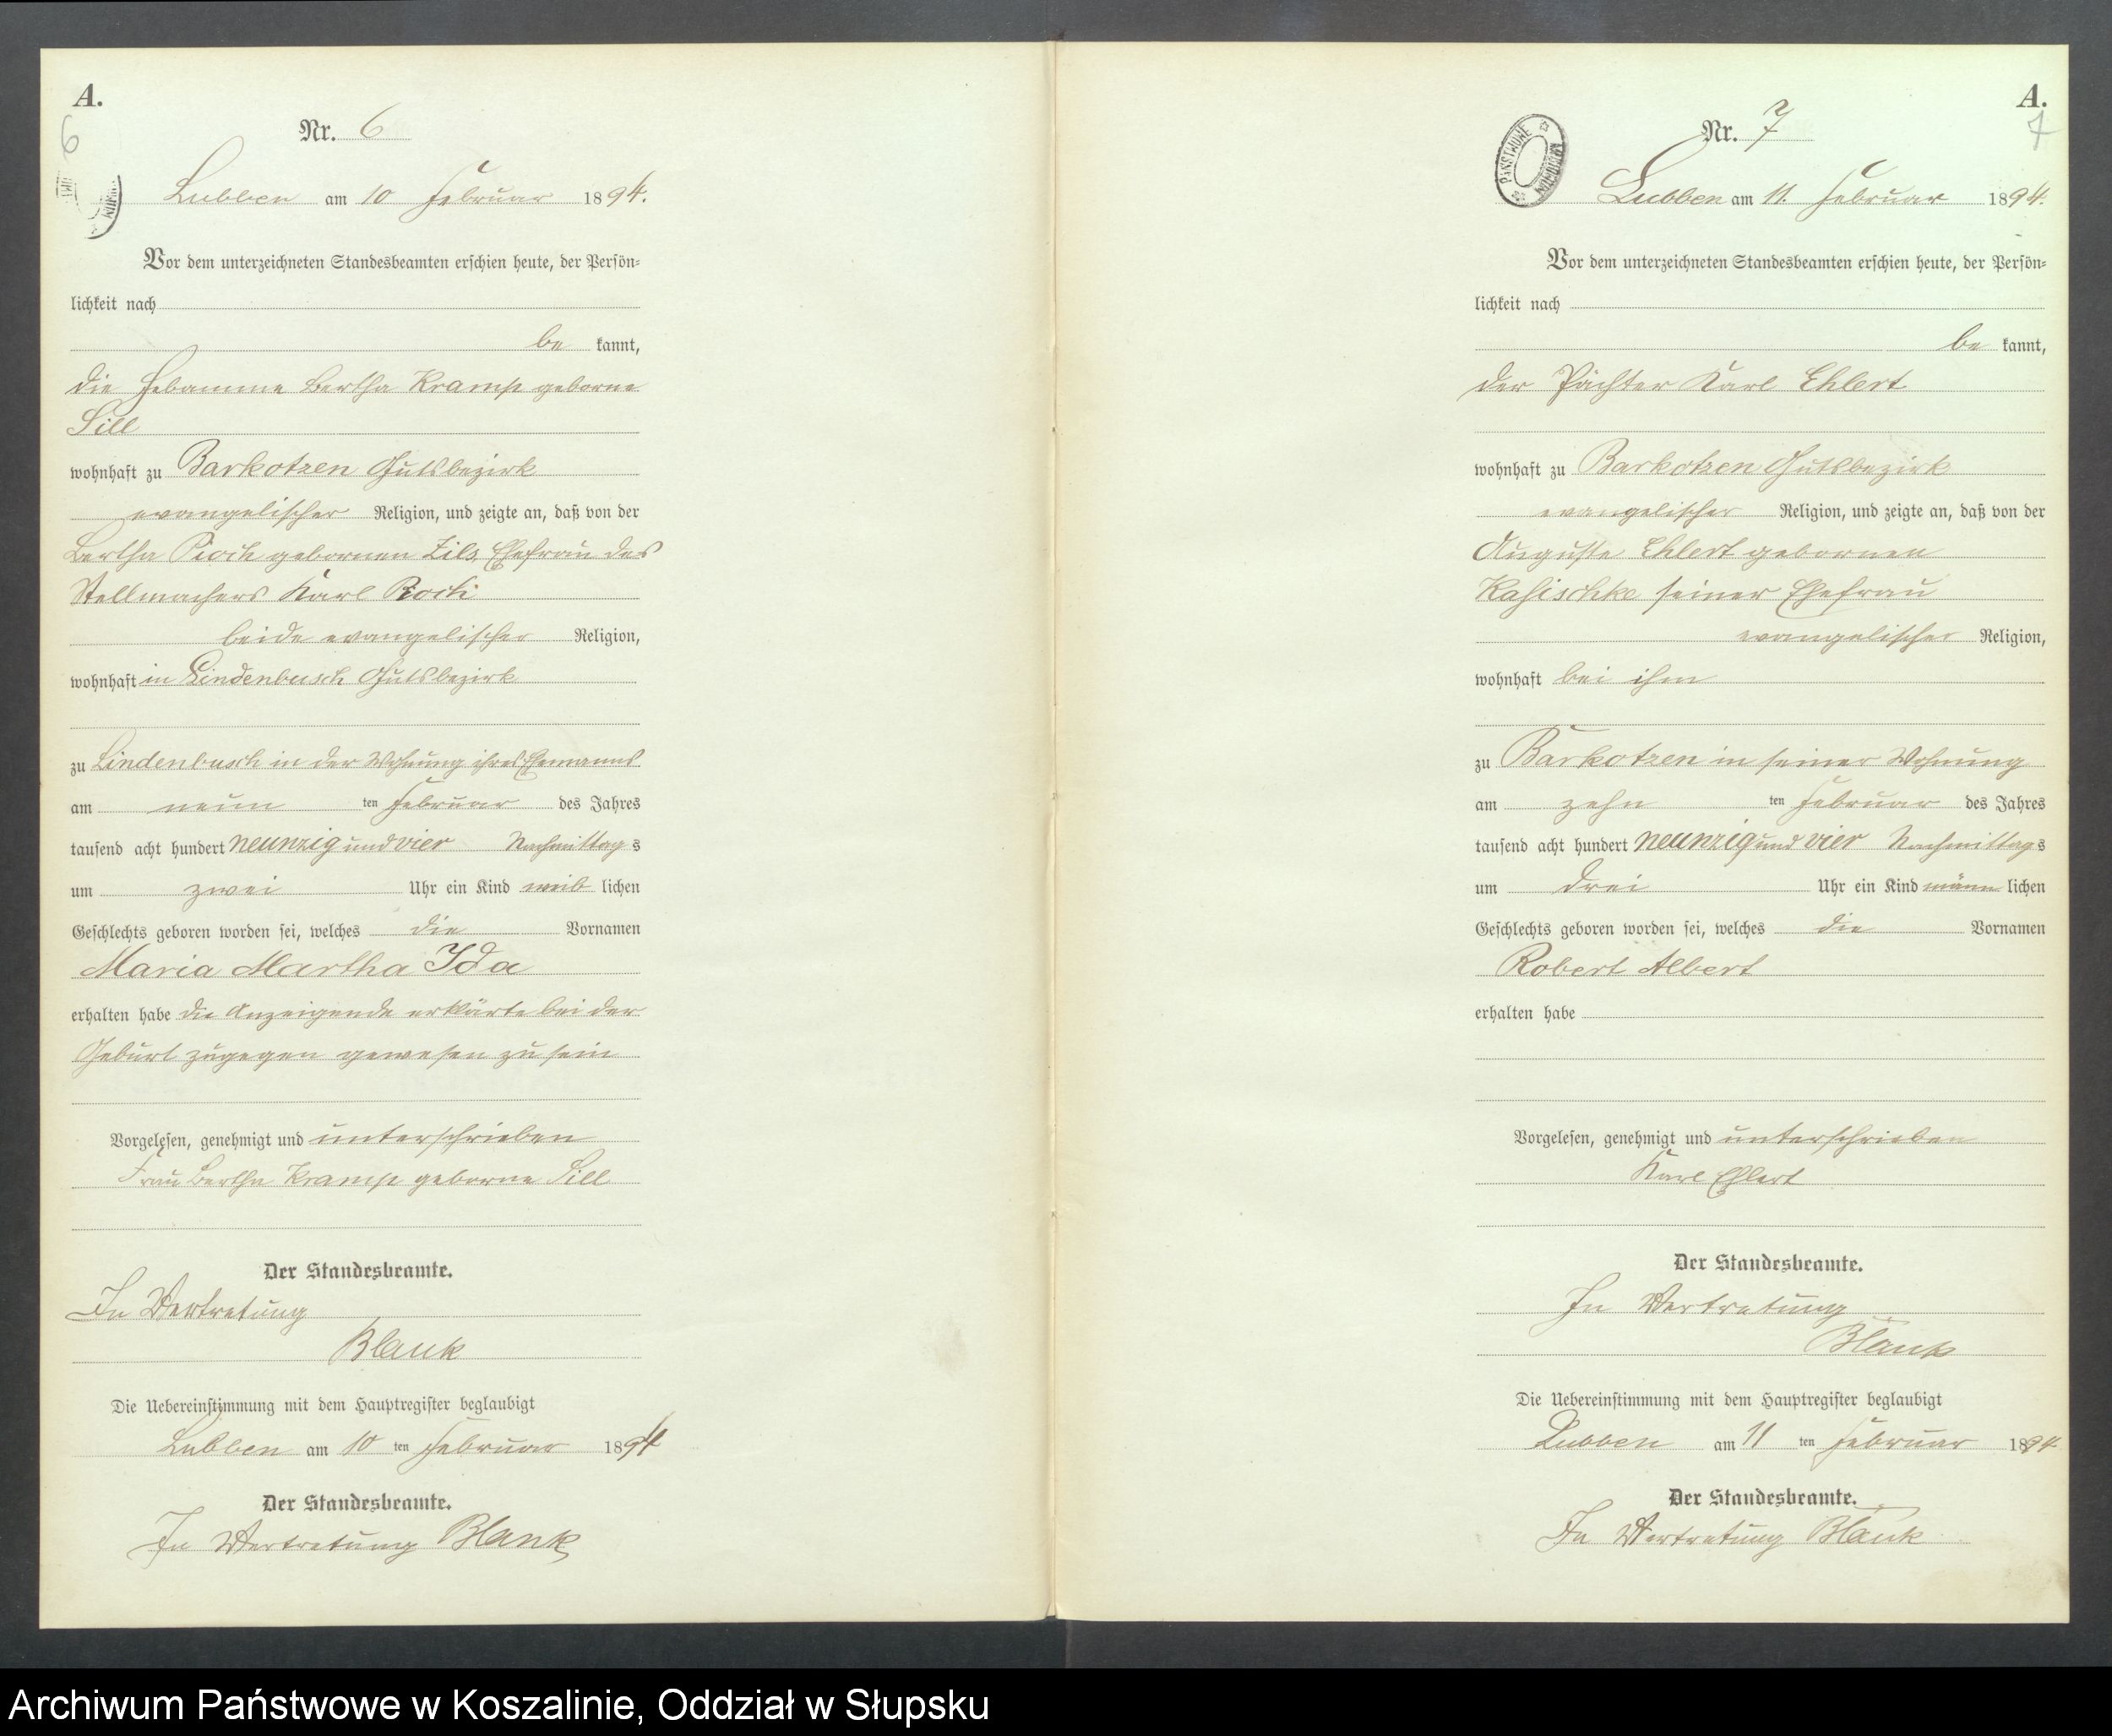 A.
6
Nr. 6
Lubben am 10 Februar 1894.
Vor dem unterzeichneten Standesbeamten erschien heute, der Persön=
lichkeit nach
be kannt,
die Hebamme Bertha Kramp geborne
Sill
wohnhaft zu Barkotzen Gutsbezirk
evangelischer Religion, und zeigte an, daß von der
Bertha Pioch gebornen Zils, Ehefrau des
Stellmachers Karl Pioch
beide evangelischer Religion,
wohnhaft in Lindenbusch Gutsbezirk
zu Lindenbusch in der Wohnung ihres Ehemanns
am neun ten Februar des Jahres
tausend acht hundert neunzig und vier Nachmittag s
um zwei Uhr ein Kind weib lichen
Geschlechts geboren worden sei, welches die Vornamen
Maria Martha Ida
erhalten habe die Anzeigende erklärte bei der
Geburt zugegen gewesen zu sein
Vorgelesen, genehmigt und unterschrieben
Frau Bertha Kramp geborne Sill
Der Standesbeamte.
In Vertretung
Blank
Die Uebereinstimmung mit dem Hauptregister beglaubigt
Lubben am 10 ten Februar 1894
Der Standesbeamte.
In Vertretung Blank
A.
7
Nr. 7
PAŃSTWOWE
Lubben am 11. Februar 1894.
Vor dem unterzeichneten Standesbeamten erschien heute, der Persön=
lichkeit nach
be kannt,
der Pächter Karl Ehlert
wohnhaft zu Barkotzen Gutsbezirk
evangelischer Religion, und zeigte an, daß von der
Auguste Ehlert gebornen
Kasischke seiner Ehefrau
evangelischer Religion,
wohnhaft bei ihm
zu Barkotzen in seiner Wohnung
am zehn ten Februar des Jahres
tausend acht hundert neunzig und vier Nachmittag s
um drei Uhr ein Kind männ lichen
Geschlechts geboren worden sei, welches die Vornamen
Robert Albert
erhalten habe
Vorgelesen, genehmigt und unterschrieben
Karl Ehlert
Der Standesbeamte.
In Vertretung
Blank
Die Uebereinstimmung mit dem Hauptregister beglaubigt
Lubben am 11 ten Februar 1894
Der Standesbeamte.
In Vertretung Blank
Archiwum Państwowe w Koszalinie, Oddział w Słupsku